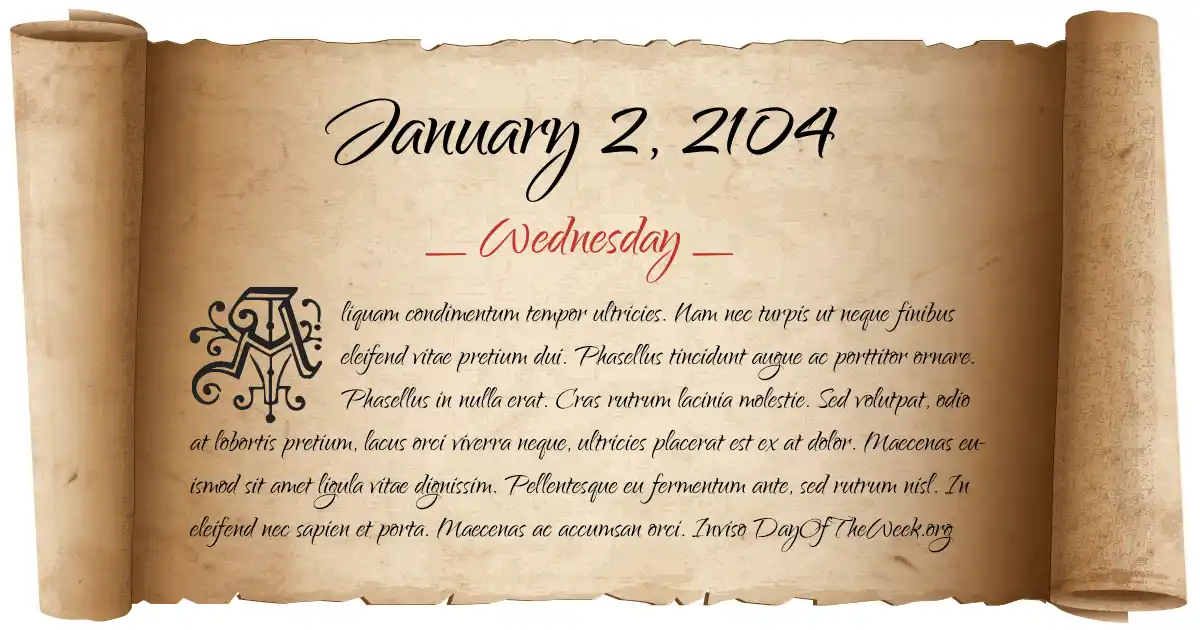 January 2, 2104
Wednesday
Aliquam condimentum tempor ultricies. Nam nec turpis ut neque finibus
eleifend vitae pretium dui. Phasellus tincidunt augue ac porttitor ornare.
Phasellus in nulla erat. Cras rutrum lacinia molestie. Sed volutpat, odio
at lobortis pretium, lacus orci viverra neque, ultricies placerat est ex at dolor. Maecenas eu-
ismod sit amet ligula vitae dignissim. Pellentesque eu fermentum ante, sed rutrum nisl. In
eleifend nec sapien et porta. Maecenas ac accumsan orci. Inviso DayOfTheWeek.org